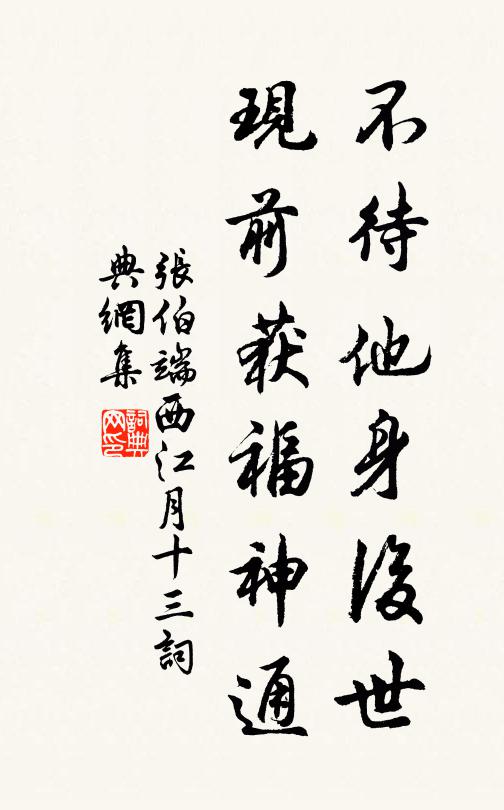 不待他身後世
現前获福神通
張伯端西江月十三詞
典網集
詞典网印